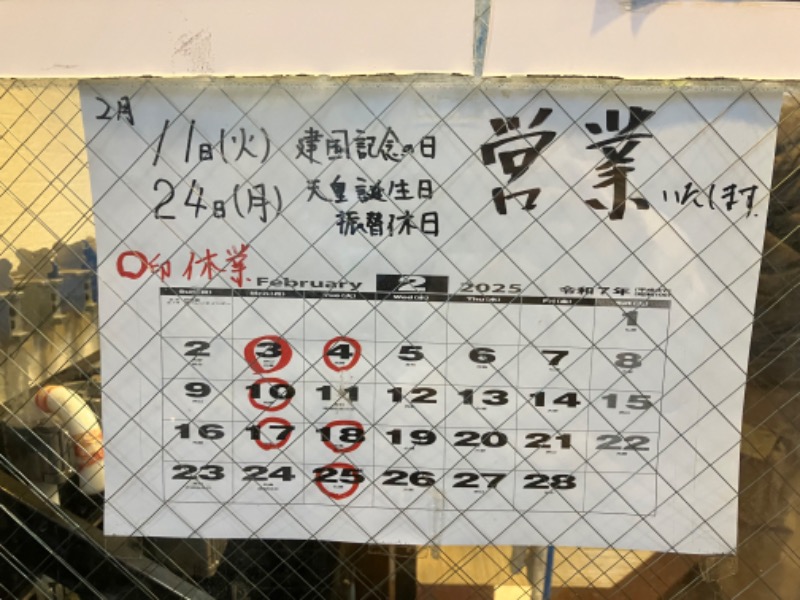 2月
11日(火) 建国記念の日
24日(月) 天皇誕生日
振替休日
営業いたします
○印 休業
February 2 2025 令和7年
Sun(日) Mon(月) Tue(火) Wed(水) Thu(木) Fri(金) Sat(土)
1
2 3 4 5 6 7 8
9 10 11 12 13 14 15
16 17 18 19 20 21 22
23 24 25 26 27 28